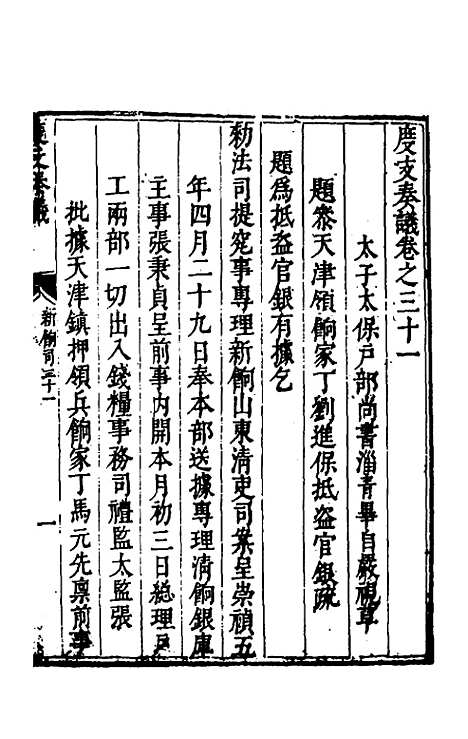 度支奏議卷之三十一
太子太保戶部尚書淄青畢自嚴視草
題叅天津領餉家丁劉進保抵盜官銀疏
題爲抵盜官銀有據乞
勅法司提究事專理新餉山東清吏司案呈崇禎五
年四月二十九日奉本部送據專理濟餉銀庫
主事張秉貞呈前事內開本月初三日總理戶
工兩部一切出入錢糧事務司禮監太監張
批據天津鎮押領兵餉家丁馬元先稟前事
度支奏議
新餉司三十一
一